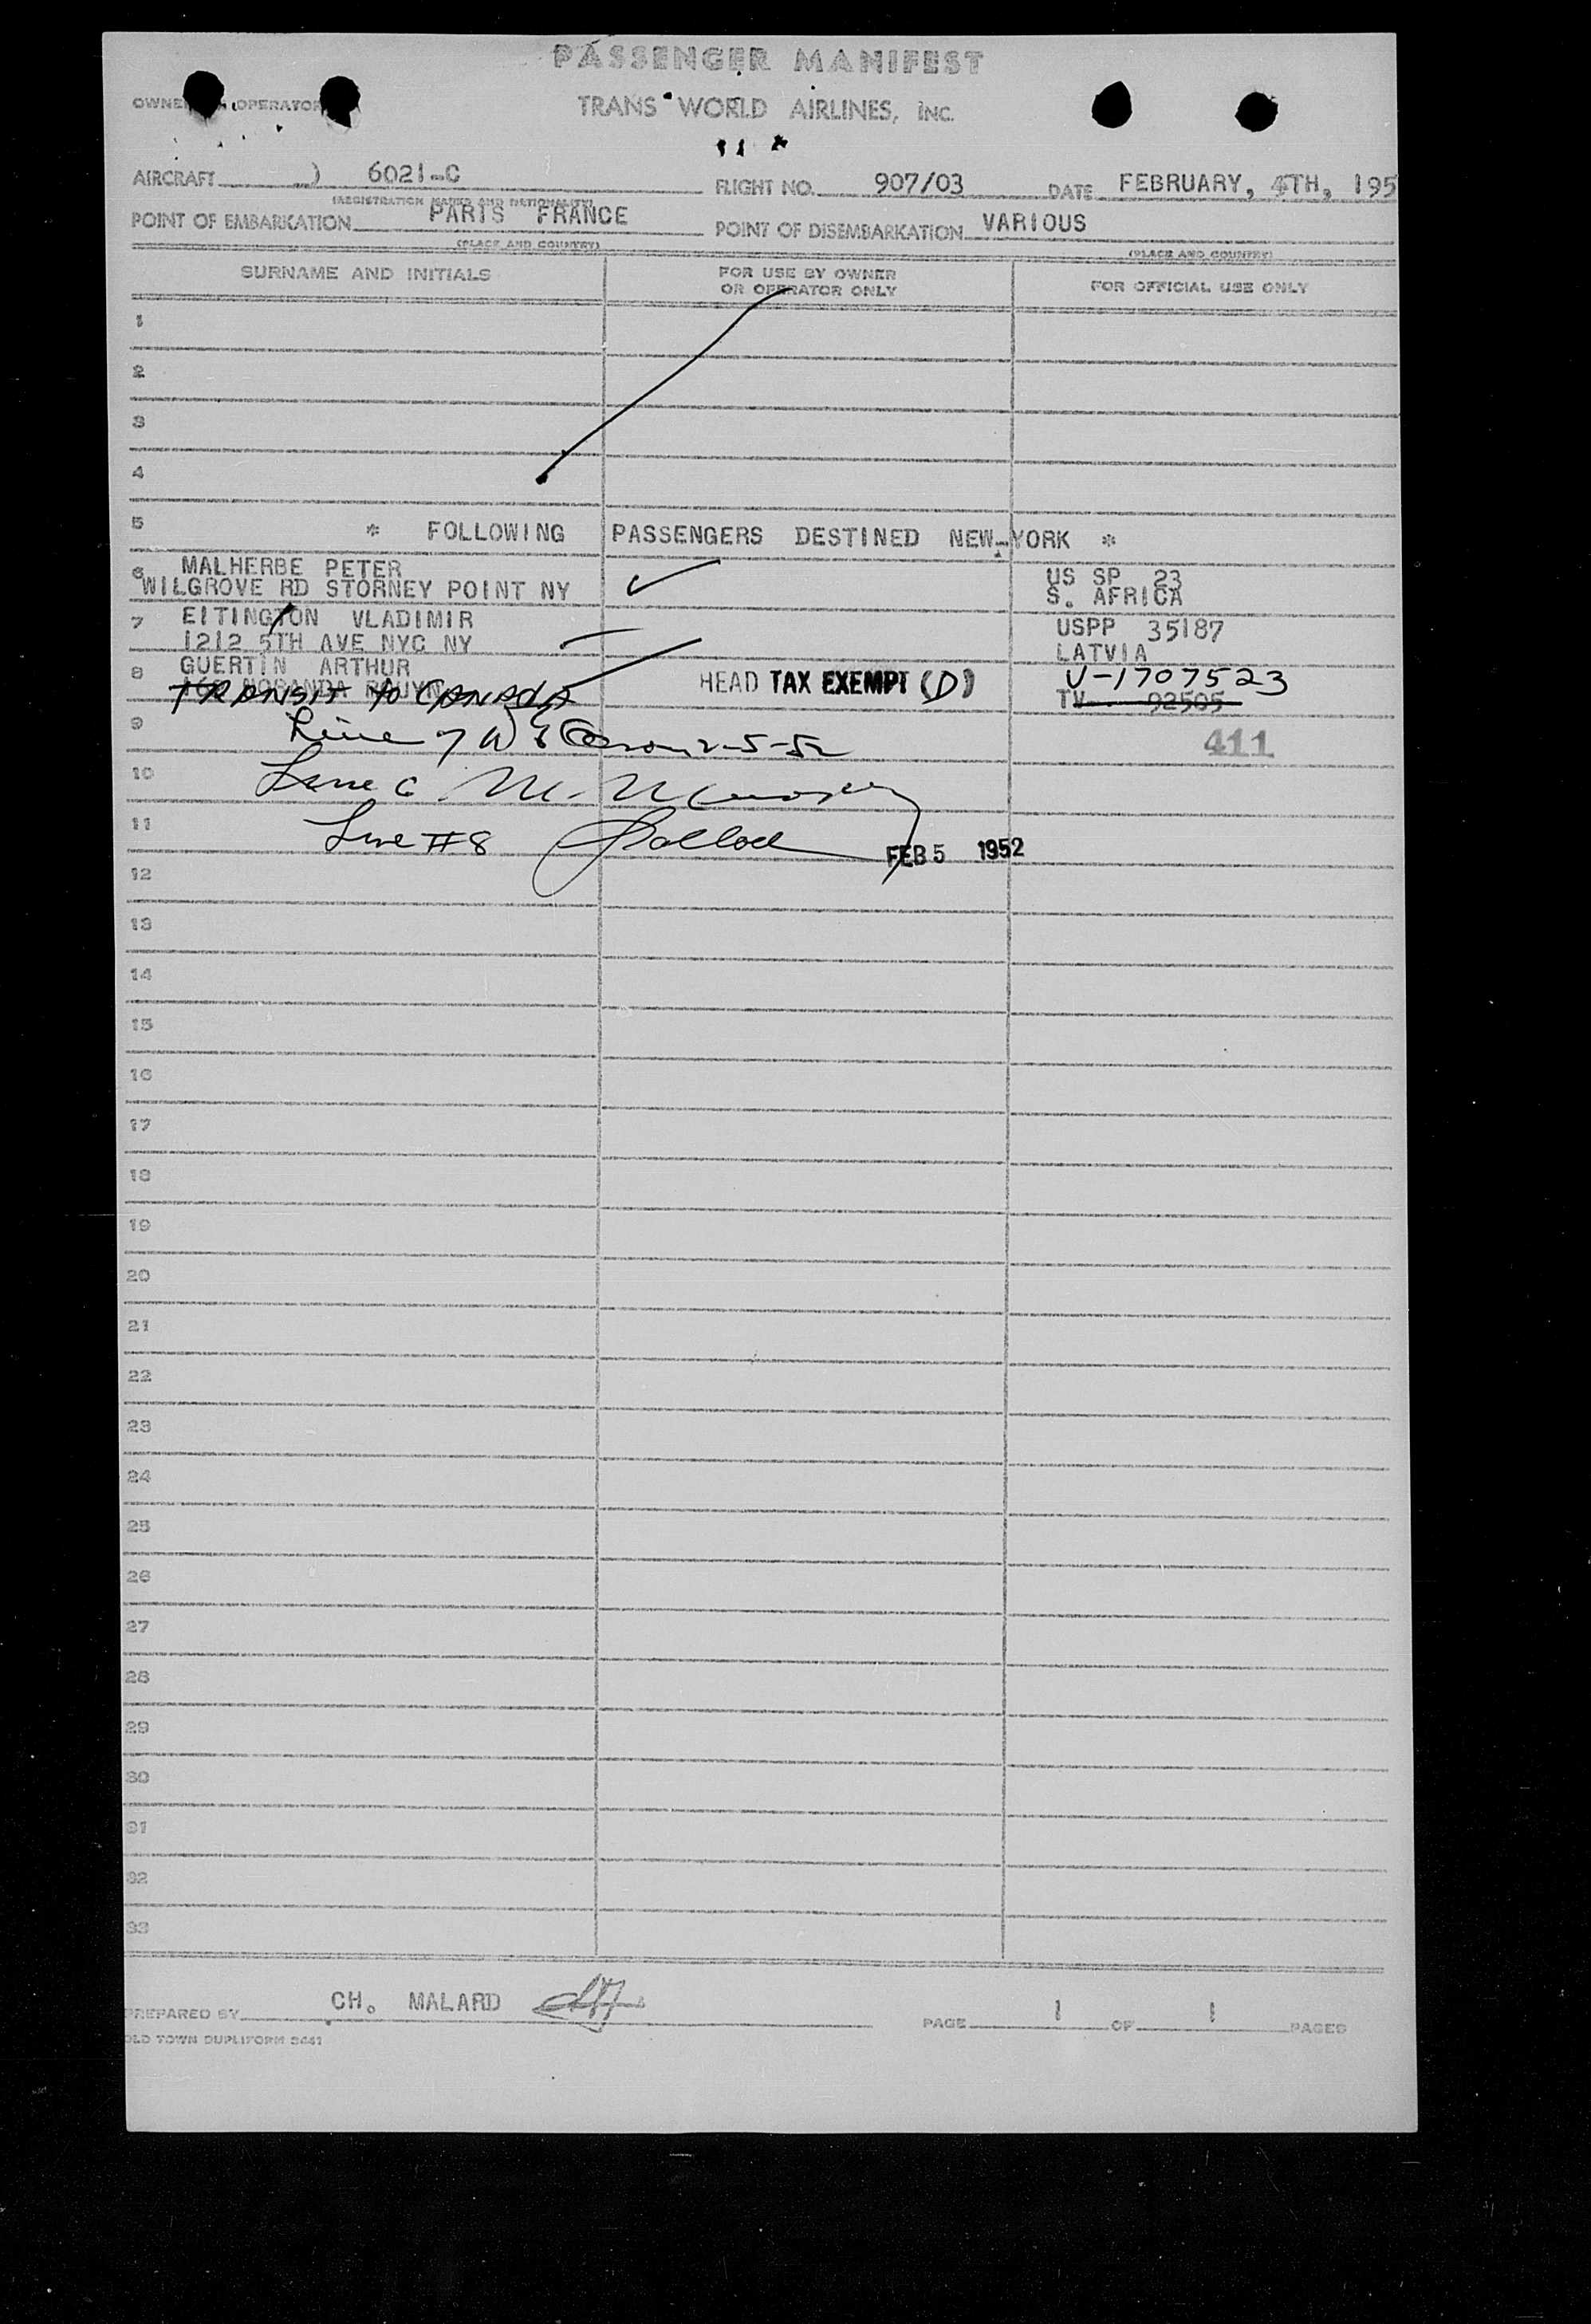 PASSENGER MANIFEST
OWNER OPERATOR
TRANS WORLD AIRLINES, INC.
AIRCRAFT 6021-C FLIGHT NO. 907/03 DATE FEBRUARY, 4TH, 195
(REGISTRATION MARKS AND NATIONALITY)
POINT OF EMBARKATION PARIS FRANCE POINT OF DISEMBARKATION VARIOUS
(PLACE AND COUNTRY) (PLACE AND COUNTRY)
SURNAME AND INITIALS FOR USE BY OWNER OR OPERATOR ONLY FOR OFFICIAL USE ONLY
1
2
3
4
5 * FOLLOWING PASSENGERS DESTINED NEW-YORK *
6 MALHERBE PETER US SP 23
WILGROVE RD STORNEY POINT NY S. AFRICA
7 EITINGTON VLADIMIR USPP 35187
1212 5TH AVE NYC NY LATVIA
8 GUERTIN ARTHUR HEAD TAX EXEMPT (D) V-1707523
NORANDA ROUYN TV 92505
TRANSIT TO CANADA
9 Line 7 2-5-52 411
10 Line 6
11 Line #8 FEB 5 1952
12
13
14
15
16
17
18
19
20
21
22
23
24
25
26
27
28
29
30
31
32
33
PREPARED BY CH. MALARD PAGE 1 OF 1 PAGES
OLD TOWN DUPLIFORM 9441